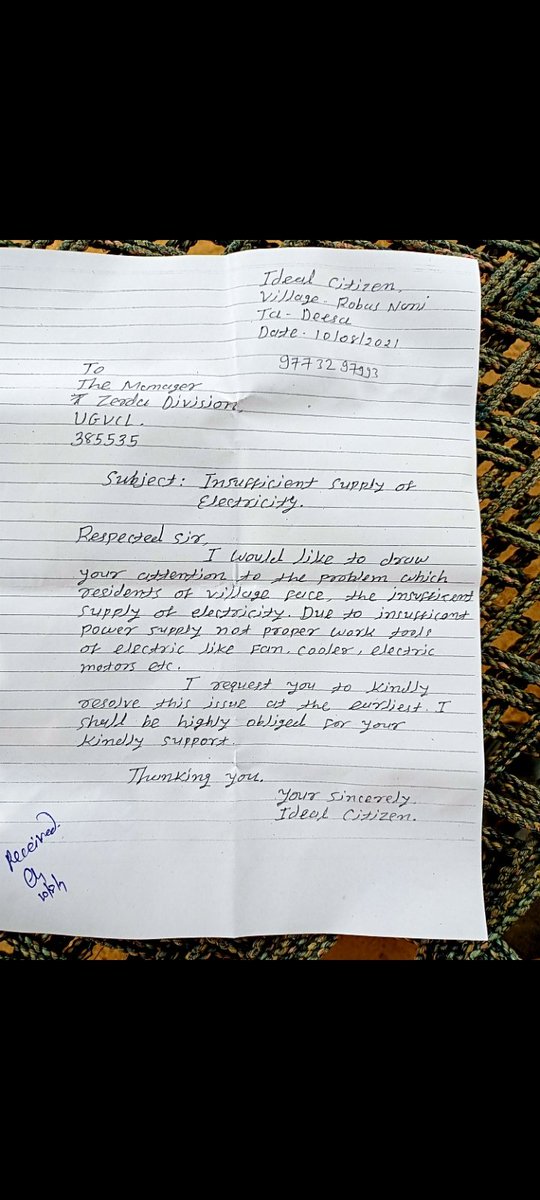 Ideal Citizen,
Village - Robas Nani
Ta - Deesa
Date - 10/08/2021
97732 97993
To
The Manager
Zerda Division,
UGVCL.
385535
Subject: Insufficient supply of
Electricity.
Respected sir,
I would like to draw
your attention to the problem which
residents of village face, the insufficent
supply of electricity. Due to insufficant
power supply not proper work tools
of electric like fan, cooler, electric
motors etc.
I request you to kindly
resolve this issue at the earliest. I
shall be highly obliged for your
kindly support.
Thanking you.
Your sincerely.
Ideal Citizen.
Received